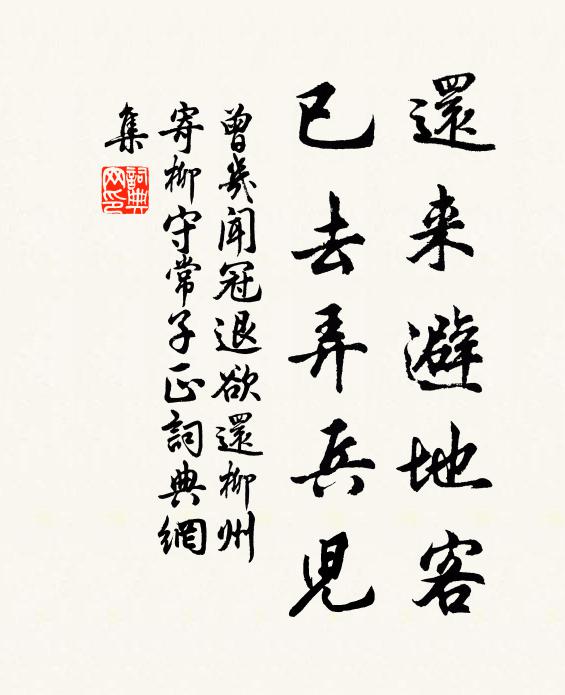 還来避地客
已去弄兵児
曾幾聞冠退欲還柳州
寄柳守常子正詞典網
集
詞典网印